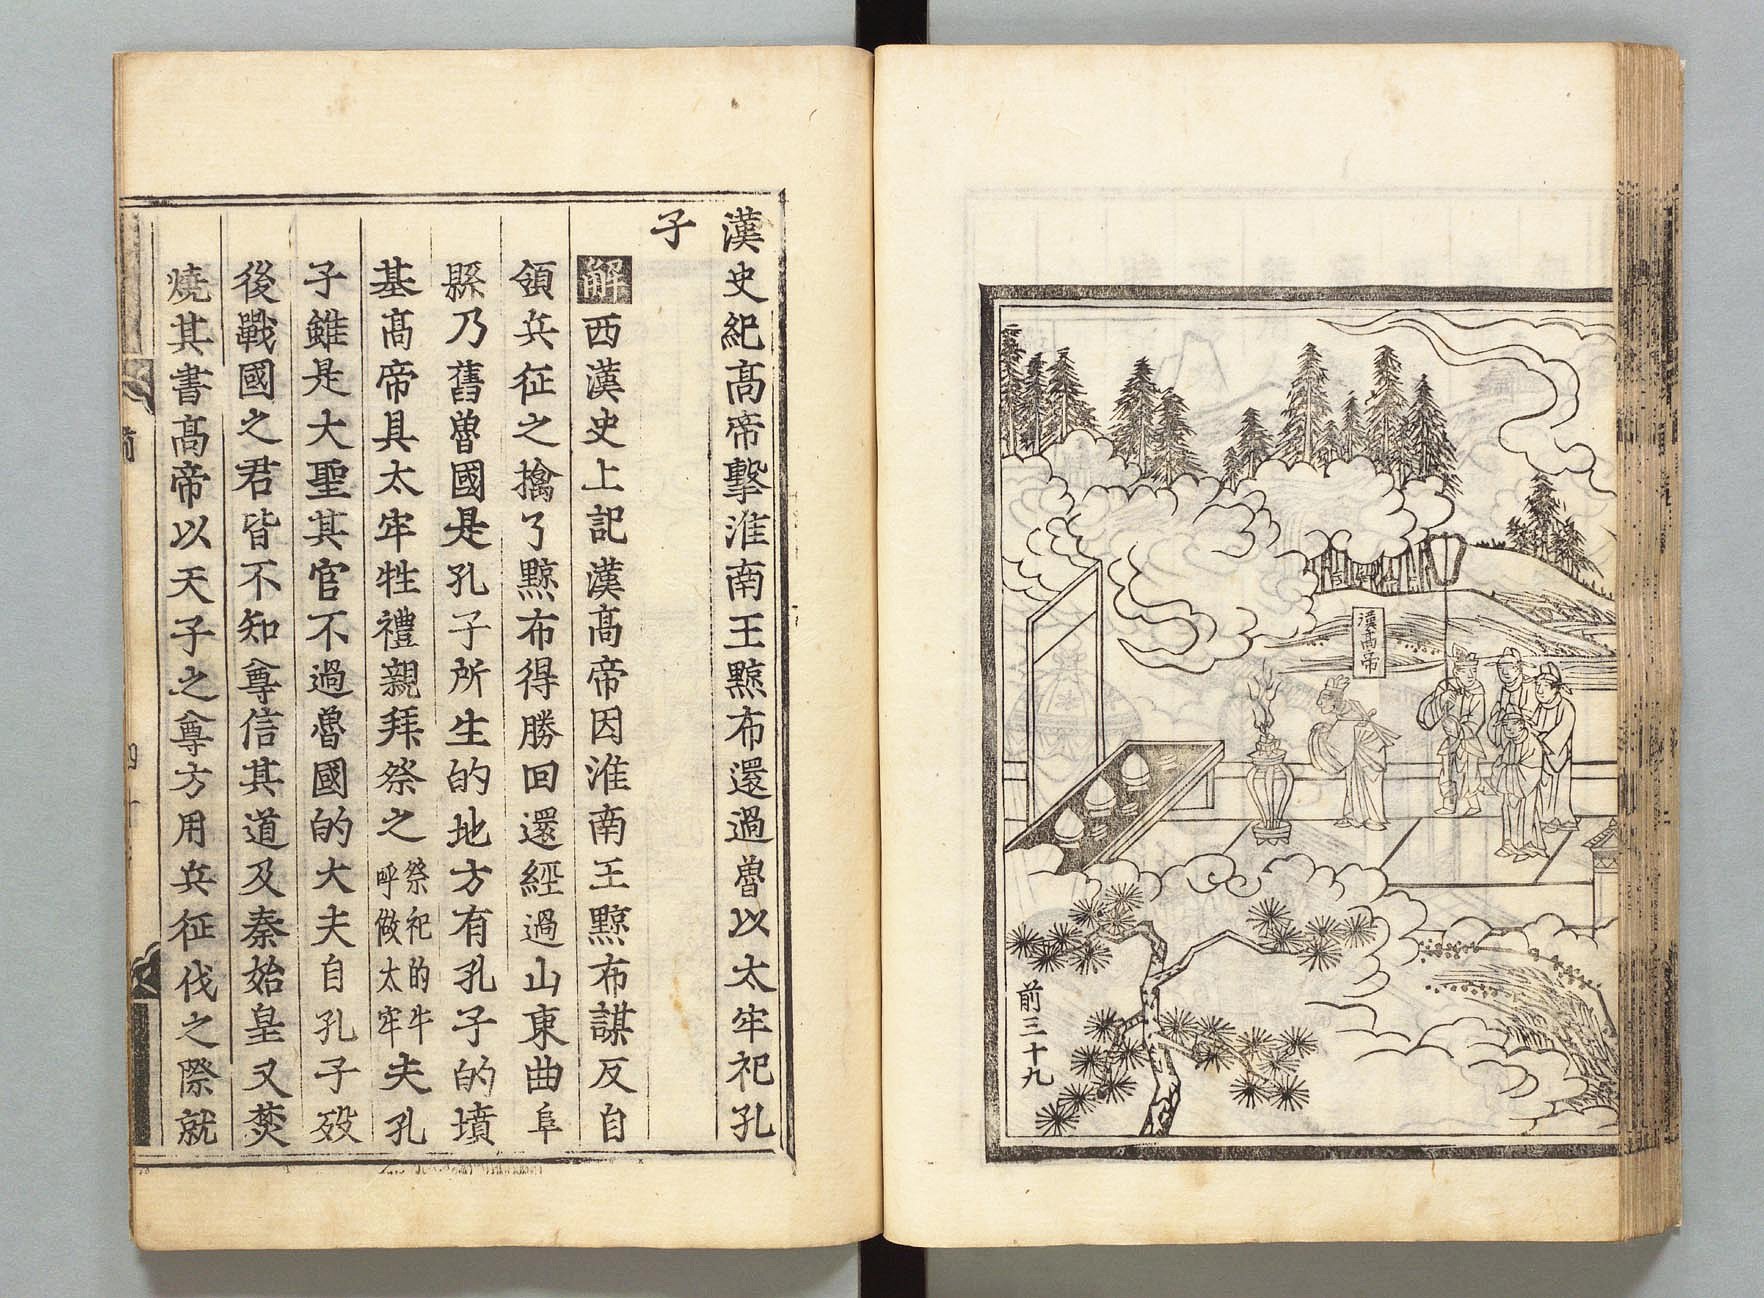 漢高帝
前三十九
漢史紀高帝擊淮南王黥布還過魯以太牢祀孔
子
解西漢史上記漢高帝因淮南王黥布謀反自
領兵征之擒了黥布得勝回還經過山東曲阜
縣乃舊魯國是孔子所生的地方有孔子的墳
基高帝具太牢牲禮親拜祭之祭祀的牛呼做太牢夫孔
子雖是大聖其官不過魯國的大夫自孔子歿
後戰國之君皆不知尊信其道及秦始皇又焚
燒其書高帝以天子之尊方用兵征伐之際就